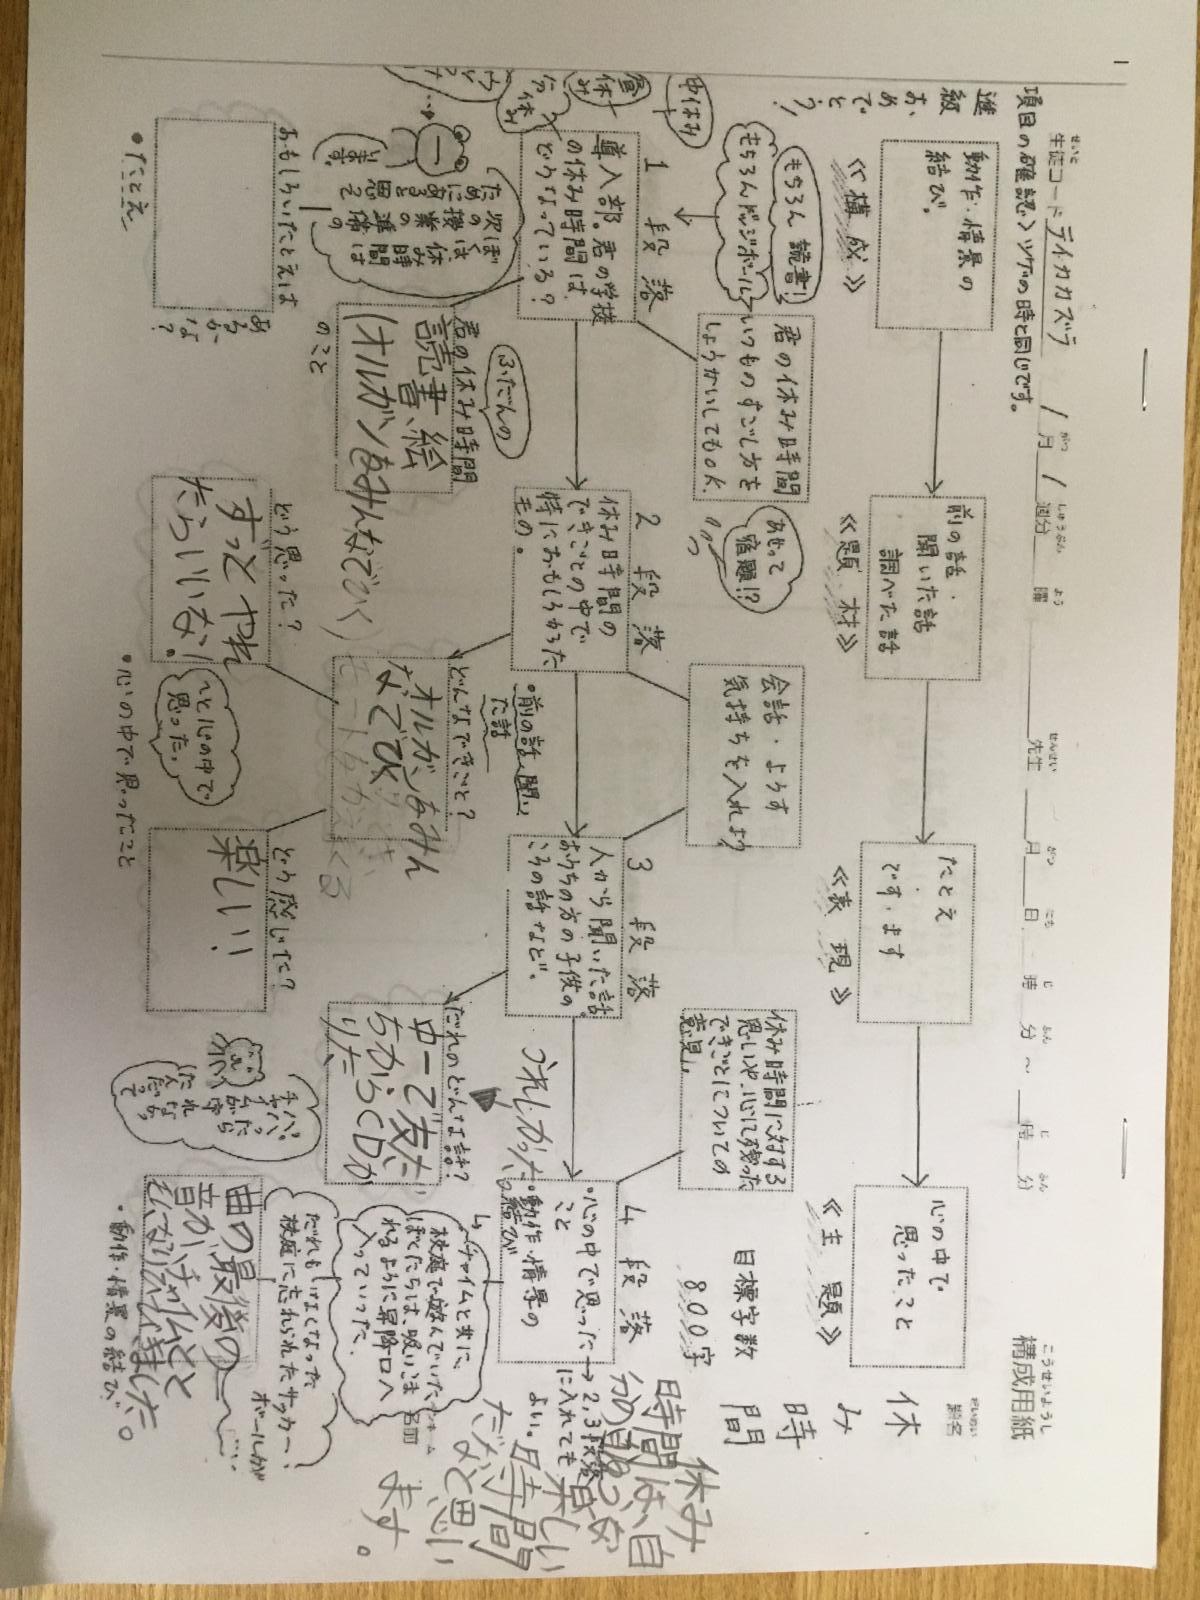 こうせいようし
構成用紙
だいめい
題名
休み時間
せいと
生徒コード テイカカズラ
1月1週分 曜 先生 月 日 時 分 ～ 時 分
項目の確認〉ツゲの時と同じです。
進級おめでとう！
動作・情景の
結び。
≪構成≫
前の話・
聞いた話
調べた話
≪題材≫
たとえ
です・ます
≪表現≫
心の中で
思ったこと
≪主題≫
目標字数
800字
もちろん読書！
もちろんドッジボール
中休み
昼休み
君の休み時間
いつものすごし方を
しょうかいしてもOK.
あせって
宿題!?
会話・ようす
気持ちを入れよう
休み時間に対する
思いや、心に残った
できごとについての
意見。
1段落
導入部。君の学校
の休み時間は、
どうなっている？
2段落
休み時間の
できごとの中で
特におもしろかった
もの。
3段落
人から聞いた話。
おうちの方の子供の
ころの話など。
4段落
・心の中で思った
こと
・動作・情景の
結び
→2,3段落
に入れても
よい。
ふだんの
君の休み時間
のこと
読書、絵
(オルガンをみんなでひく)
・前の話、聞い
た話
どんなできごと？
オルガンをみん
なでOK
うれしかった。
だれのどんな話？
中一で友だ
ちからCDか
りた
ぼくは、休み時間は
次の授業の準備の
ためにあると思って
います。
おもしろいたとえは
あるかな？
・たとえ
どう思った？
ずっとやれ
たらいいな！
〜と心の中で
思った。
・心の中で思ったこと
どう感じた？
楽しい！
チャイムと共に、
校庭で遊んでいた
ぼくたちは、吸いこま
れるように昇降口へ
入っていった。
だれもいなくなった
校庭に忘れられたサッカー
ボールが
曲の最後の
音が、チャイムと
・動作・情景の結び。
休み
時間は、自
分の
楽しい
時間
だなと思い
ます。